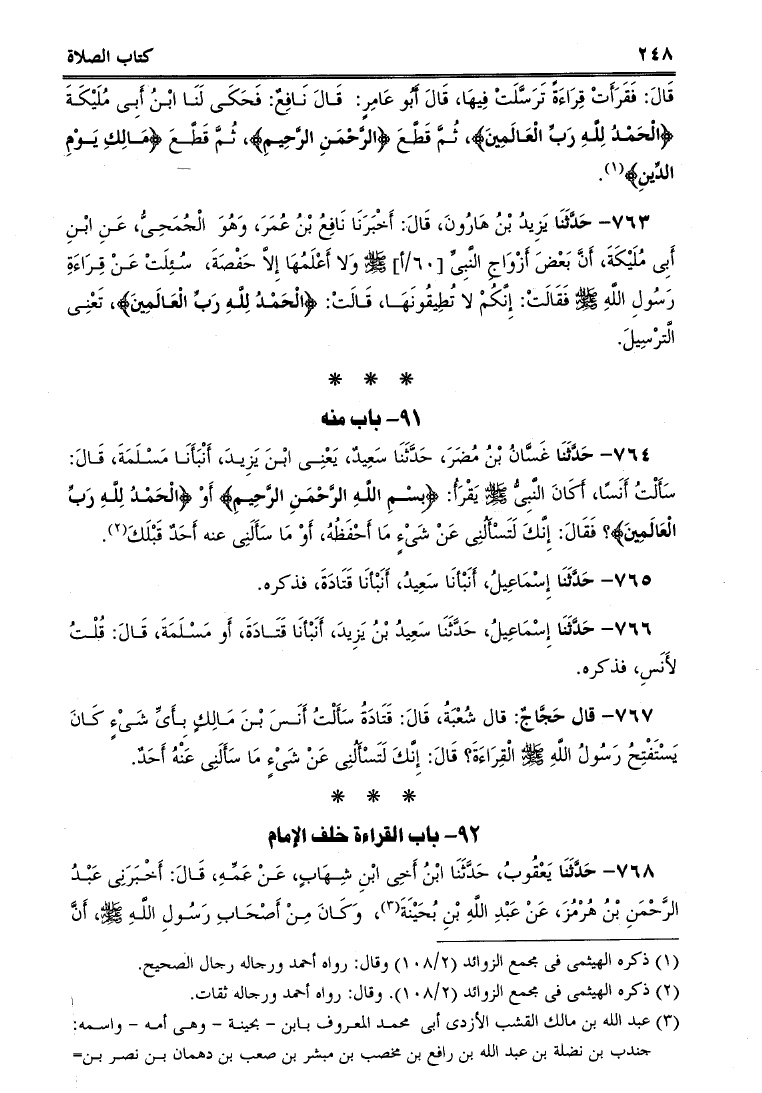 ٢٤٨ كتاب الصلاة
قَالَ: فَقَرَأَتْ قِرَاءَةً تَرَسَّلَتْ فِيهَا، قَالَ أَبُو عَامِرٍ: قَالَ نَافِعٌ: فَحَكَى لَنَا ابْنُ أَبِى مُلَيْكَةَ
﴿الْحَمْدُ لِلَّهِ رَبِّ الْعَالَمِينَ﴾، ثُمَّ قَطَّعَ ﴿الرَّحْمَنِ الرَّحِيمِ﴾، ثُمَّ قَطَّعَ ﴿مَالِكِ يَوْمِ
الدِّينِ﴾(١).
٧٦٣- حَدَّثَنَا يَزِيدُ بْنُ هَارُونَ، قَالَ: أَخْبَرَنَا نَافِعُ بْنُ عُمَرَ، وَهُوَ الْجُمَحِىُّ، عَنِ ابْنِ
أَبِى مُلَيْكَةَ، أَنَّ بَعْضَ أَزْوَاجِ النَّبِىِّ [٦٠/أ] ﷺ وَلا أَعْلَمُهَا إِلاَّ حَفْصَةَ، سُئِلَتْ عَنْ قِرَاءَةِ
رَسُولِ اللَّهِ ﷺ فَقَالَتْ: إِنَّكُمْ لا تُطِيقُونَهَا، قَالَتْ: ﴿الْحَمْدُ لِلَّهِ رَبِّ الْعَالَمِينَ﴾، تَعْنِى
التَّرْسِيلَ.
* * *
٩١- باب منه
٧٦٤- حَدَّثَنَا غَسَّانُ بْنُ مُضَرَ، حَدَّثَنَا سَعِيدٌ، يَعْنِى ابْنَ يَزِيدَ، أَنْبَأَنَا مَسْلَمَةَ، قَالَ:
سَأَلْتُ أَنَسًا، أَكَانَ النَّبِىُّ ﷺ يَقْرَأُ: ﴿بِسْمِ اللَّهِ الرَّحْمَنِ الرَّحِيمِ﴾ أَوْ ﴿الْحَمْدُ لِلَّهِ رَبِّ
الْعَالَمِينَ﴾؟ فَقَالَ: إِنَّكَ لَتَسْأَلُنِى عَنْ شَىْءٍ مَا أَحْفَظُهُ، أَوْ مَا سَأَلَنِى عنه أَحَدٌ قَبْلَكَ(٢).
٧٦٥- حَدَّثَنَا إِسْمَاعِيلُ، أَنْبَأنَا سَعِيدُ، أَنْبَأْنَا قَتَادَةَ، فذكره.
٧٦٦- حَدَّثَنَا إِسْمَاعِيلُ، حَدَّثَنَا سَعِيدُ بْنُ يَزِيدَ، أَنْبَأنَا قَتَادَةَ، أو مَسْلَمَةَ، قَالَ: قُلْتُ
لأَنَسٍ، فذكره.
٧٦٧- قال حَجَّاجٌ: قال شُعْبَةُ، قَالَ: قَتَادَةُ سَأَلْتُ أَنَسَ بْنَ مَالِكٍ بِأَىِّ شَىْءٍ كَانَ
يَسْتَفْتِحُ رَسُولُ اللَّهِ ﷺ الْقِرَاءَةَ؟ قَالَ: إِنَّكَ لَتَسْأَلُنِى عَنْ شَىْءٍ مَا سَأَلَنِى عَنْهُ أَحَدٌ.
* * *
٩٢- باب القراءة خلف الإمام
٧٦٨- حَدَّثَنَا يَعْقُوبُ، حَدَّثَنَا ابْنُ أَخِى ابْنِ شِهَابٍ، عَنْ عَمِّهِ، قَالَ: أَخْبَرَنِى عَبْدُ
الرَّحْمَنِ بْنُ هُرْمُزَ، عَنْ عَبْدِ اللَّهِ بْنِ بُحَيْنَةَ(٣)، وَكَانَ مِنْ أَصْحَابِ رَسُولِ اللَّهِ ﷺ، أَنَّ
(١) ذكره الهيثمى فى مجمع الزوائد (١٠٨/٢) وقال: رواه أحمد ورجاله رجال الصحيح.
(٢) ذكره الهيثمى فى مجمع الزوائد (١٠٨/٢). وقال: رواه أحمد ورجاله ثقات.
(٣) عبد الله بن مالك القشب الأزدى أبى محمد المعروف بابن - بحينة - وهى أمه - واسمه:
جندب بن نضلة بن عبد الله بن رافع بن مخصب بن مبشر بن صعب بن دهمان بن نصر بن=